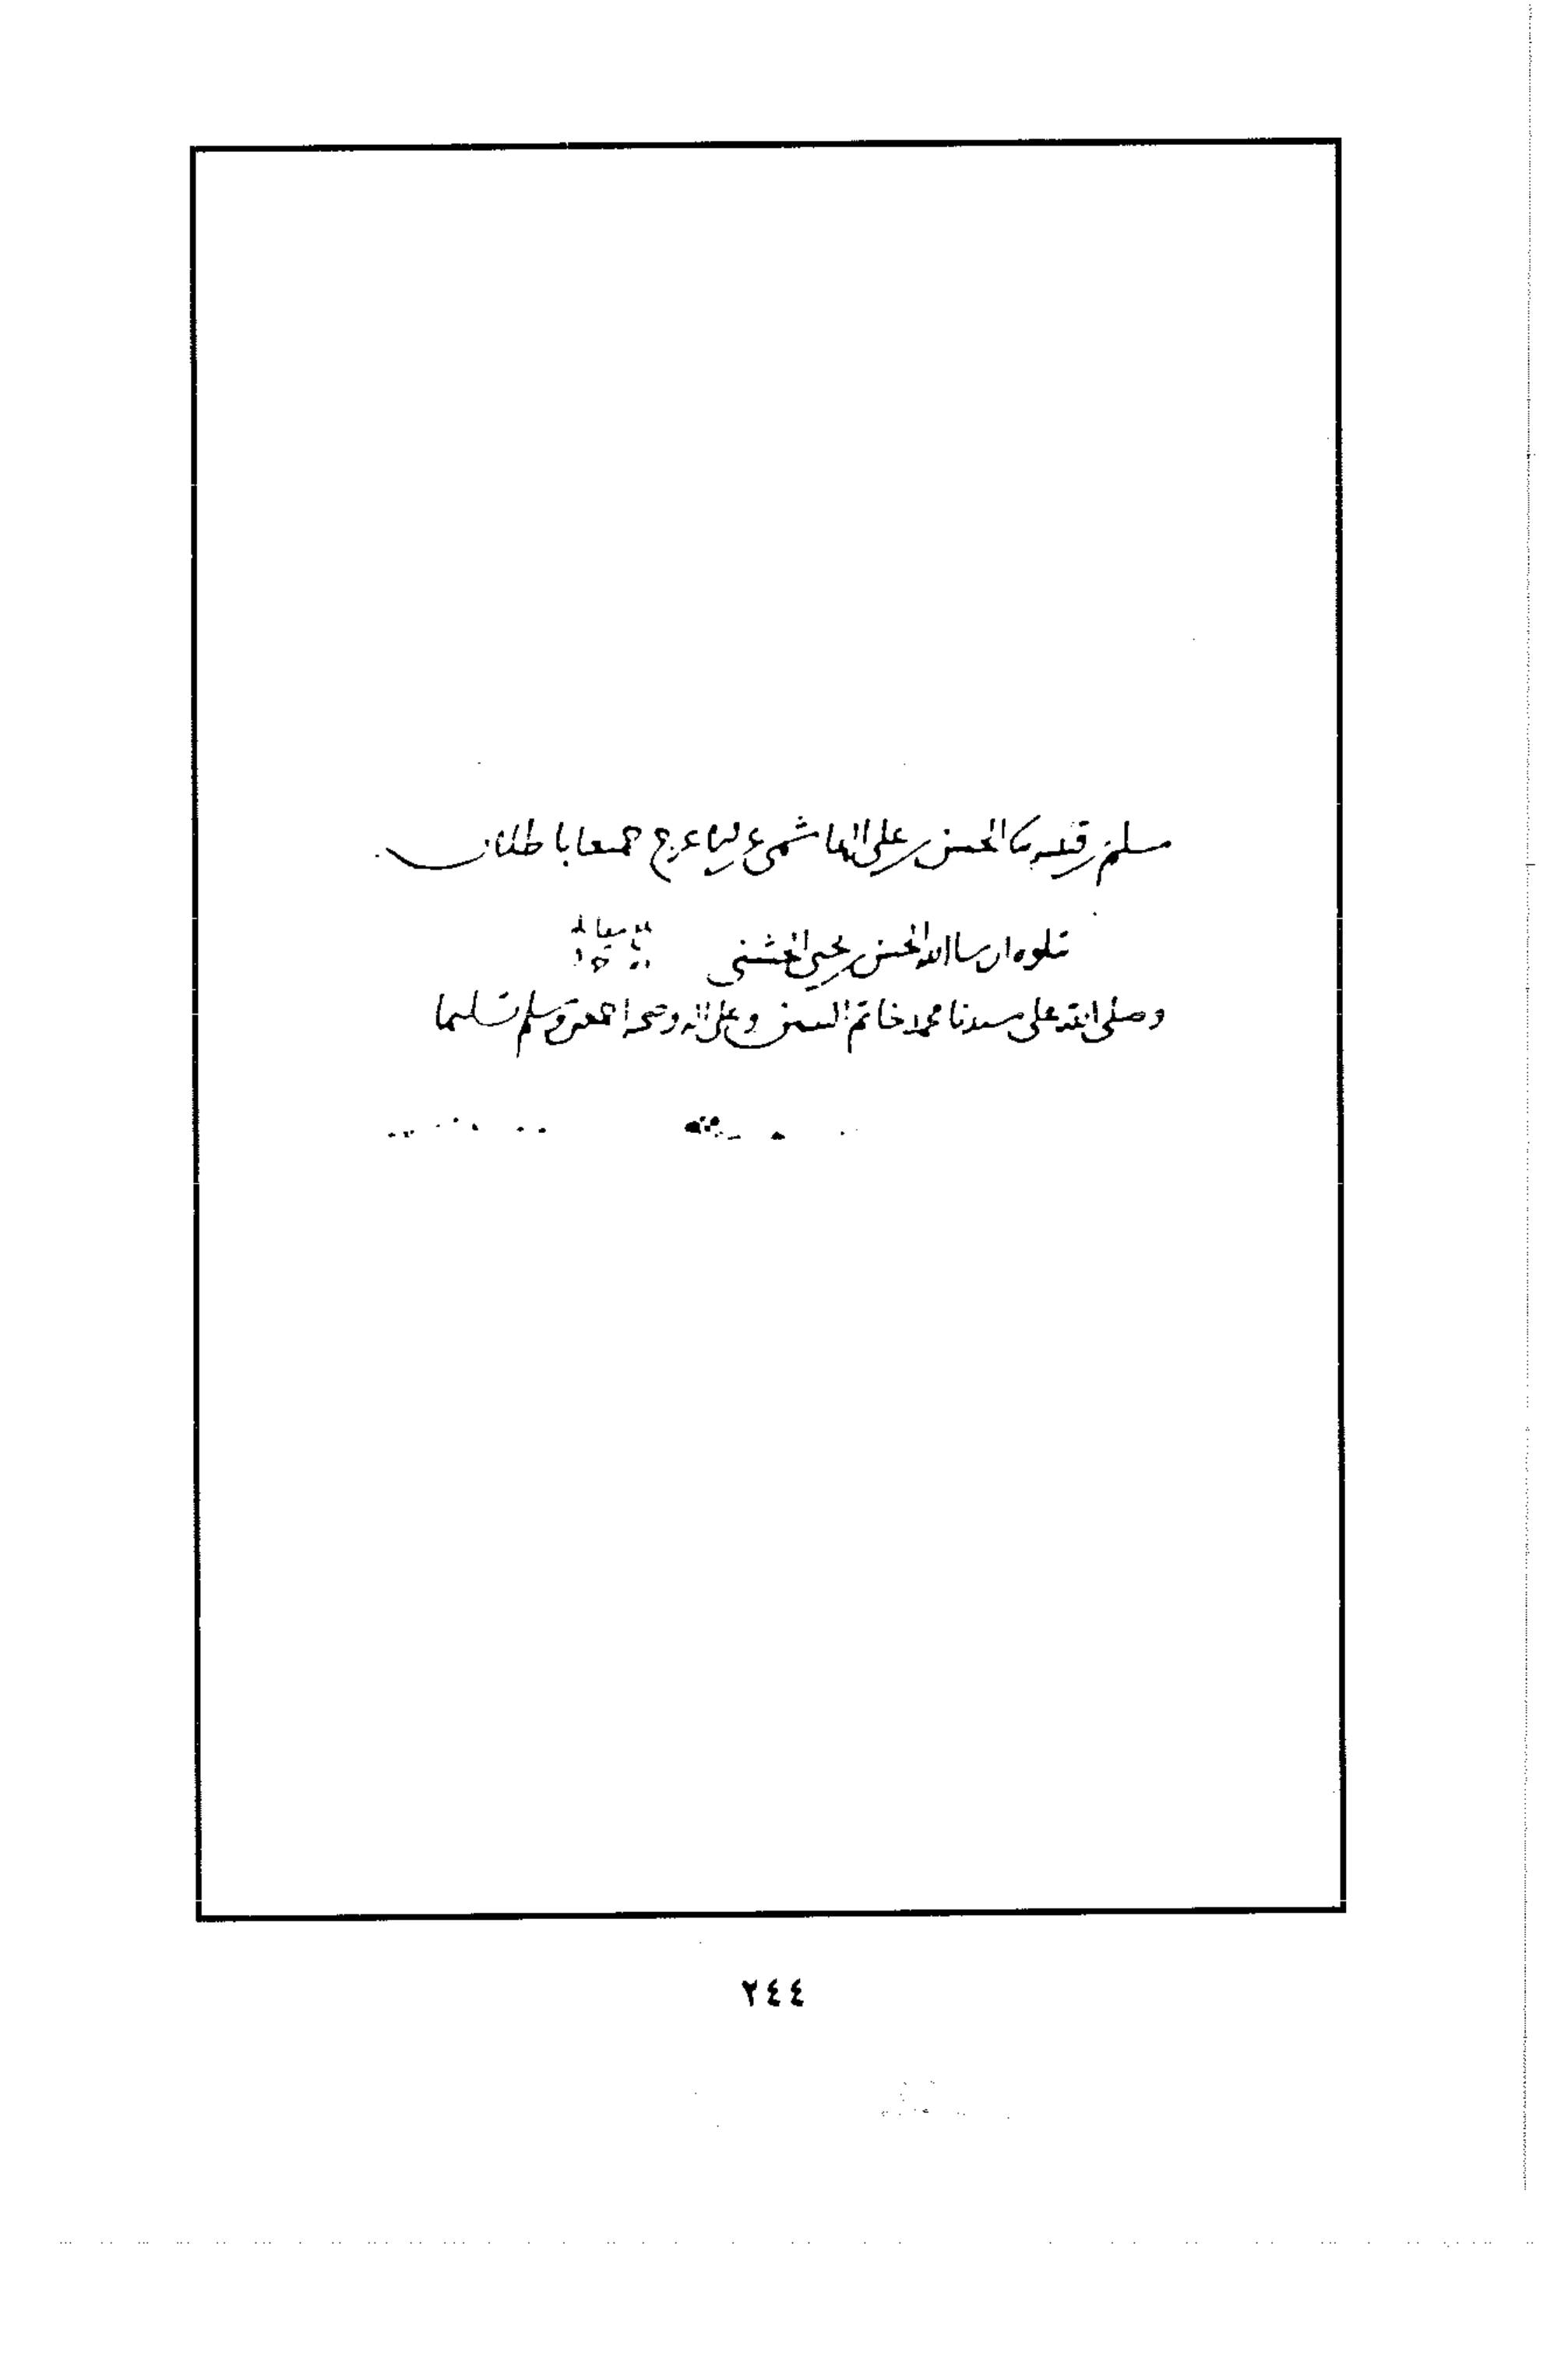 مسلم بن قتيبة نا الحسن بن علي الهاشمي عن الاعرج جميعا باطلان
يتلوه ان شا الله الحسن بن يحيى الخشني
وصلى الله على سيدنا محمد خاتم النبيين وعلى اله وصحبه اجمعين وسلم تسليما
٢٤٤